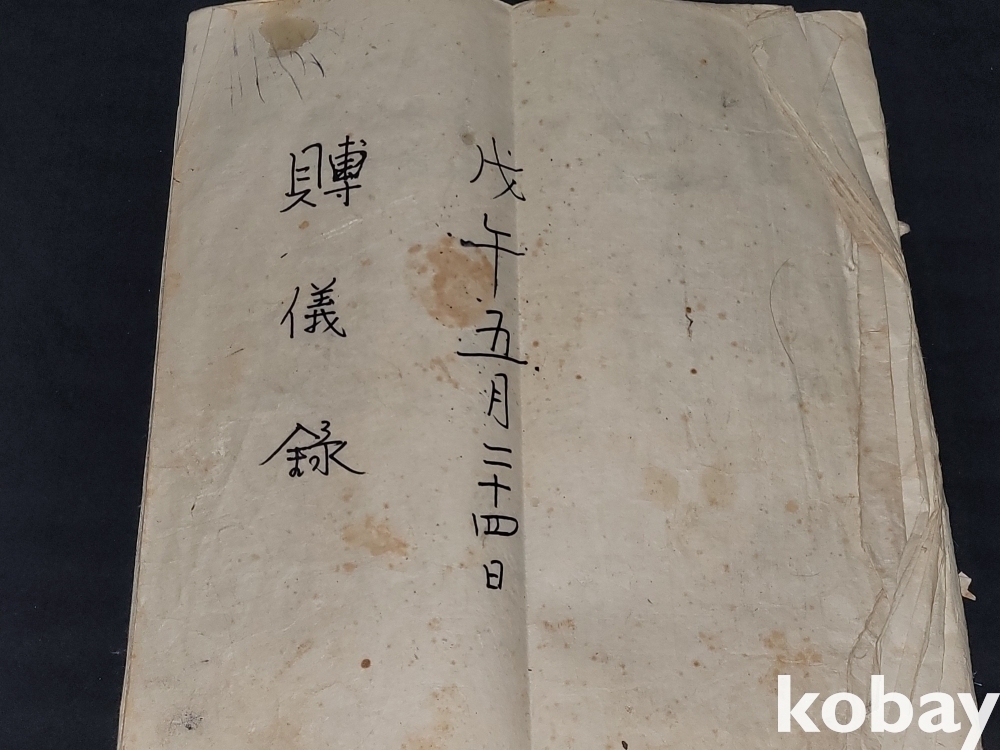 戊午五月二十四日
賻儀錄
kobay